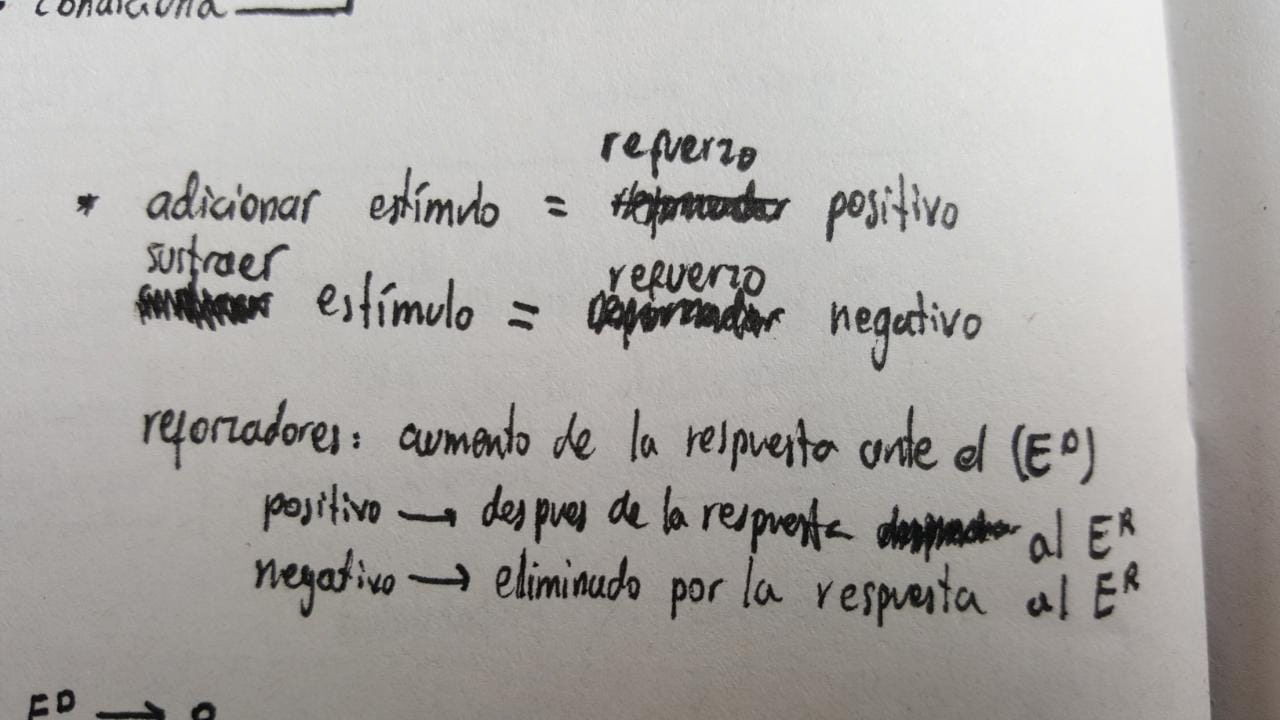 condiciona
* adicionar estímulo = refuerzo positivo
sustraer estímulo = refuerzo negativo
reforzadores: aumento de la respuesta ante el (E^D)
positivo → despues de la respuesta al E^R
negativo → eliminado por la respuesta al E^R
E^D →